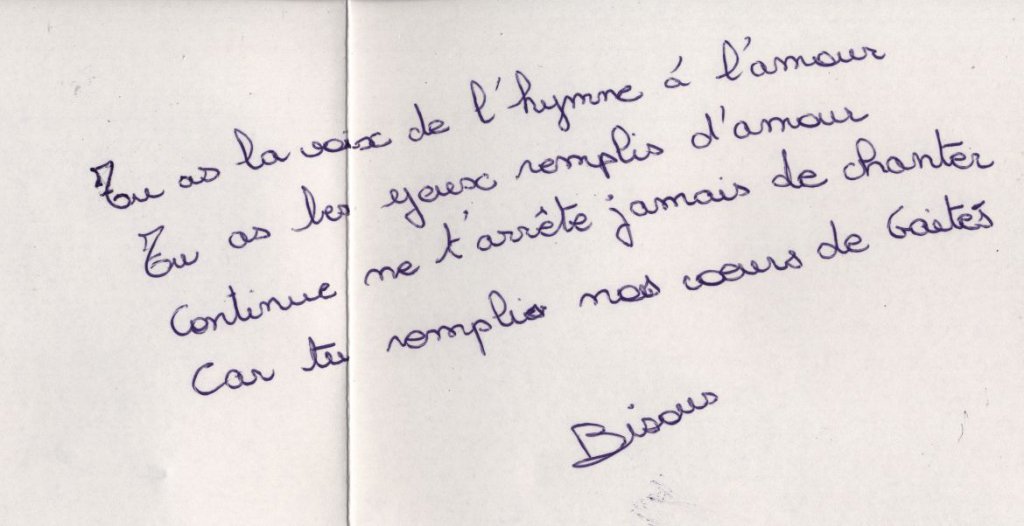 Tu as la voix de l'hymne á l'amour
Tu as les yeux remplis d'amour
Continue ne t'arrête jamais de chanter
Car tu remplis nos coeurs de Gaités
Bisous